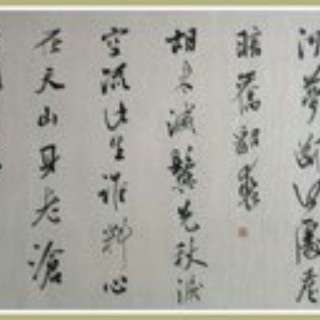 河夢斷何處塵
暗舊貂裘
胡未滅鬢先秋淚
空流此生誰料心
在天山身老滄